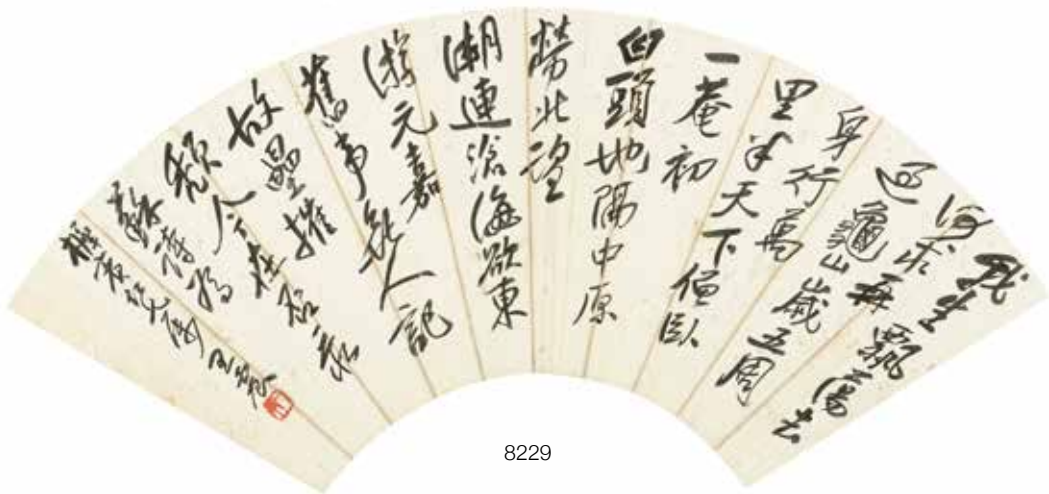 我生飄蕩去
何求再
過龜山歲五周
身行萬
里半天下僧臥
一菴初
白頭地隔中原
勞北望
潮連滄海欲東
游元嘉
舊事無人記
故壘摧
頹今在
蘇詩
王震
8229